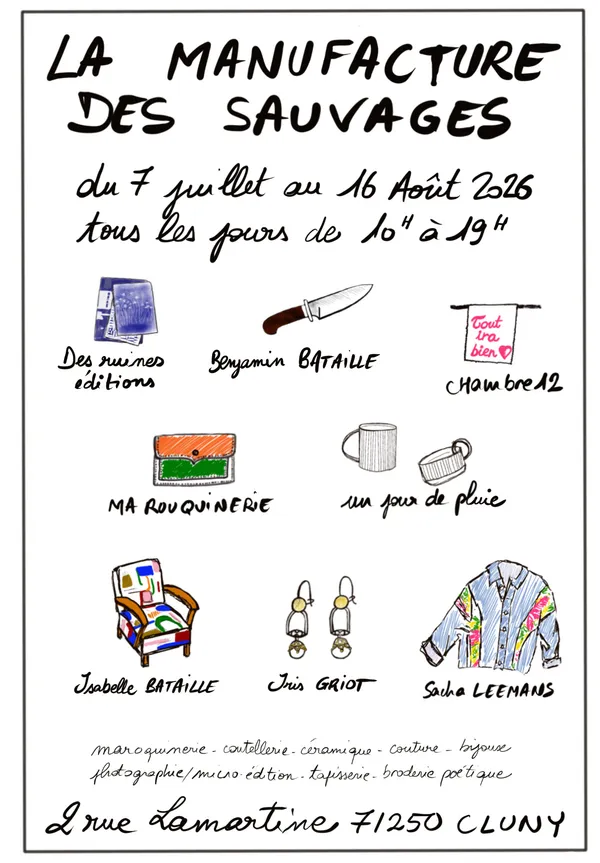 LA MANUFACTURE
DES SAUVAGES
du 7 juillet au 16 Août 2026
tous les jours de 10H à 19H
Tout
ira
bien
Des ruines
éditions
Benjamin BATAILLE
CHambre 12
MA ROUQUINERIE
un jour de pluie
Isabelle BATAILLE
Iris GRIOT
Sacha LEEMANS
maroquinerie - coutellerie - céramique - couture - bijoux
photographie/micro-édition - tapisserie - broderie poétique
2 rue Lamartine 71250 CLUNY